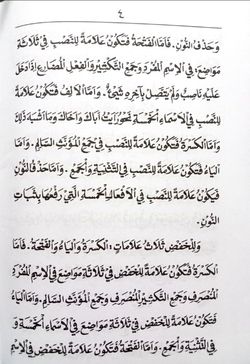 ٤
وَحَذْفُ النُّوْنِ. فَأَمَّا الْفَتْحَةُ فَتَكُوْنُ عَلَامَةً لِلنَّصْبِ فِيْ ثَلَاثَةِ
مَوَاضِعَ، فِي الْاِسْمِ الْمُفْرَدِ وَجَمْعِ التَّكْسِيْرِ وَالْفِعْلِ الْمُضَارِعِ إِذَا دَخَلَ
عَلَيْهِ نَاصِبٌ وَلَمْ يَتَّصِلْ بِآخِرِهِ شَيْءٌ. وَأَمَّا الْأَلِفُ فَتَكُوْنُ عَلَامَةً
لِلنَّصْبِ فِي الْأَسْمَاءِ الْخَمْسَةِ نَحْوُ رَأَيْتُ أَبَاكَ وَأَخَاكَ وَمَا أَشْبَهَ ذٰلِكَ
وَأَمَّا الْكَسْرَةُ فَتَكُوْنُ عَلَامَةً لِلنَّصْبِ فِيْ جَمْعِ الْمُؤَنَّثِ السَّالِمِ. وَأَمَّا
الْيَاءُ فَتَكُوْنُ عَلَامَةً لِلنَّصْبِ فِي التَّثْنِيَةِ وَالْجَمْعِ. وَأَمَّا حَذْفُ النُّوْنِ
فَيَكُوْنُ عَلَامَةً لِلنَّصْبِ فِي الْأَفْعَالِ الْخَمْسَةِ الَّتِيْ رَفْعُهَا بِثَبَاتِ
النُّوْنِ.
وَلِلْخَفْضِ ثَلَاثُ عَلَامَاتٍ. الْكَسْرَةُ وَالْيَاءُ وَالْفَتْحَةُ. فَأَمَّا
الْكَسْرَةُ فَتَكُوْنُ عَلَامَةً لِلْخَفْضِ فِيْ ثَلَاثَةِ مَوَاضِعَ فِي الْاِسْمِ الْمُفْرَدِ
الْمُنْصَرِفِ وَجَمْعِ التَّكْسِيْرِ الْمُنْصَرِفِ وَجَمْعِ الْمُؤَنَّثِ السَّالِمِ. وَأَمَّا الْيَاءُ
فَتَكُوْنُ عَلَامَةً لِلْخَفْضِ فِيْ ثَلَاثَةِ مَوَاضِعَ فِي الْأَسْمَاءِ الْخَمْسَةِ وَ
فِي التَّثْنِيَةِ وَالْجَمْعِ. وَأَمَّا الْفَتْحَةُ فَتَكُوْنُ عَلَامَةً لِلْخَفْضِ فِي الْاِسْمِ